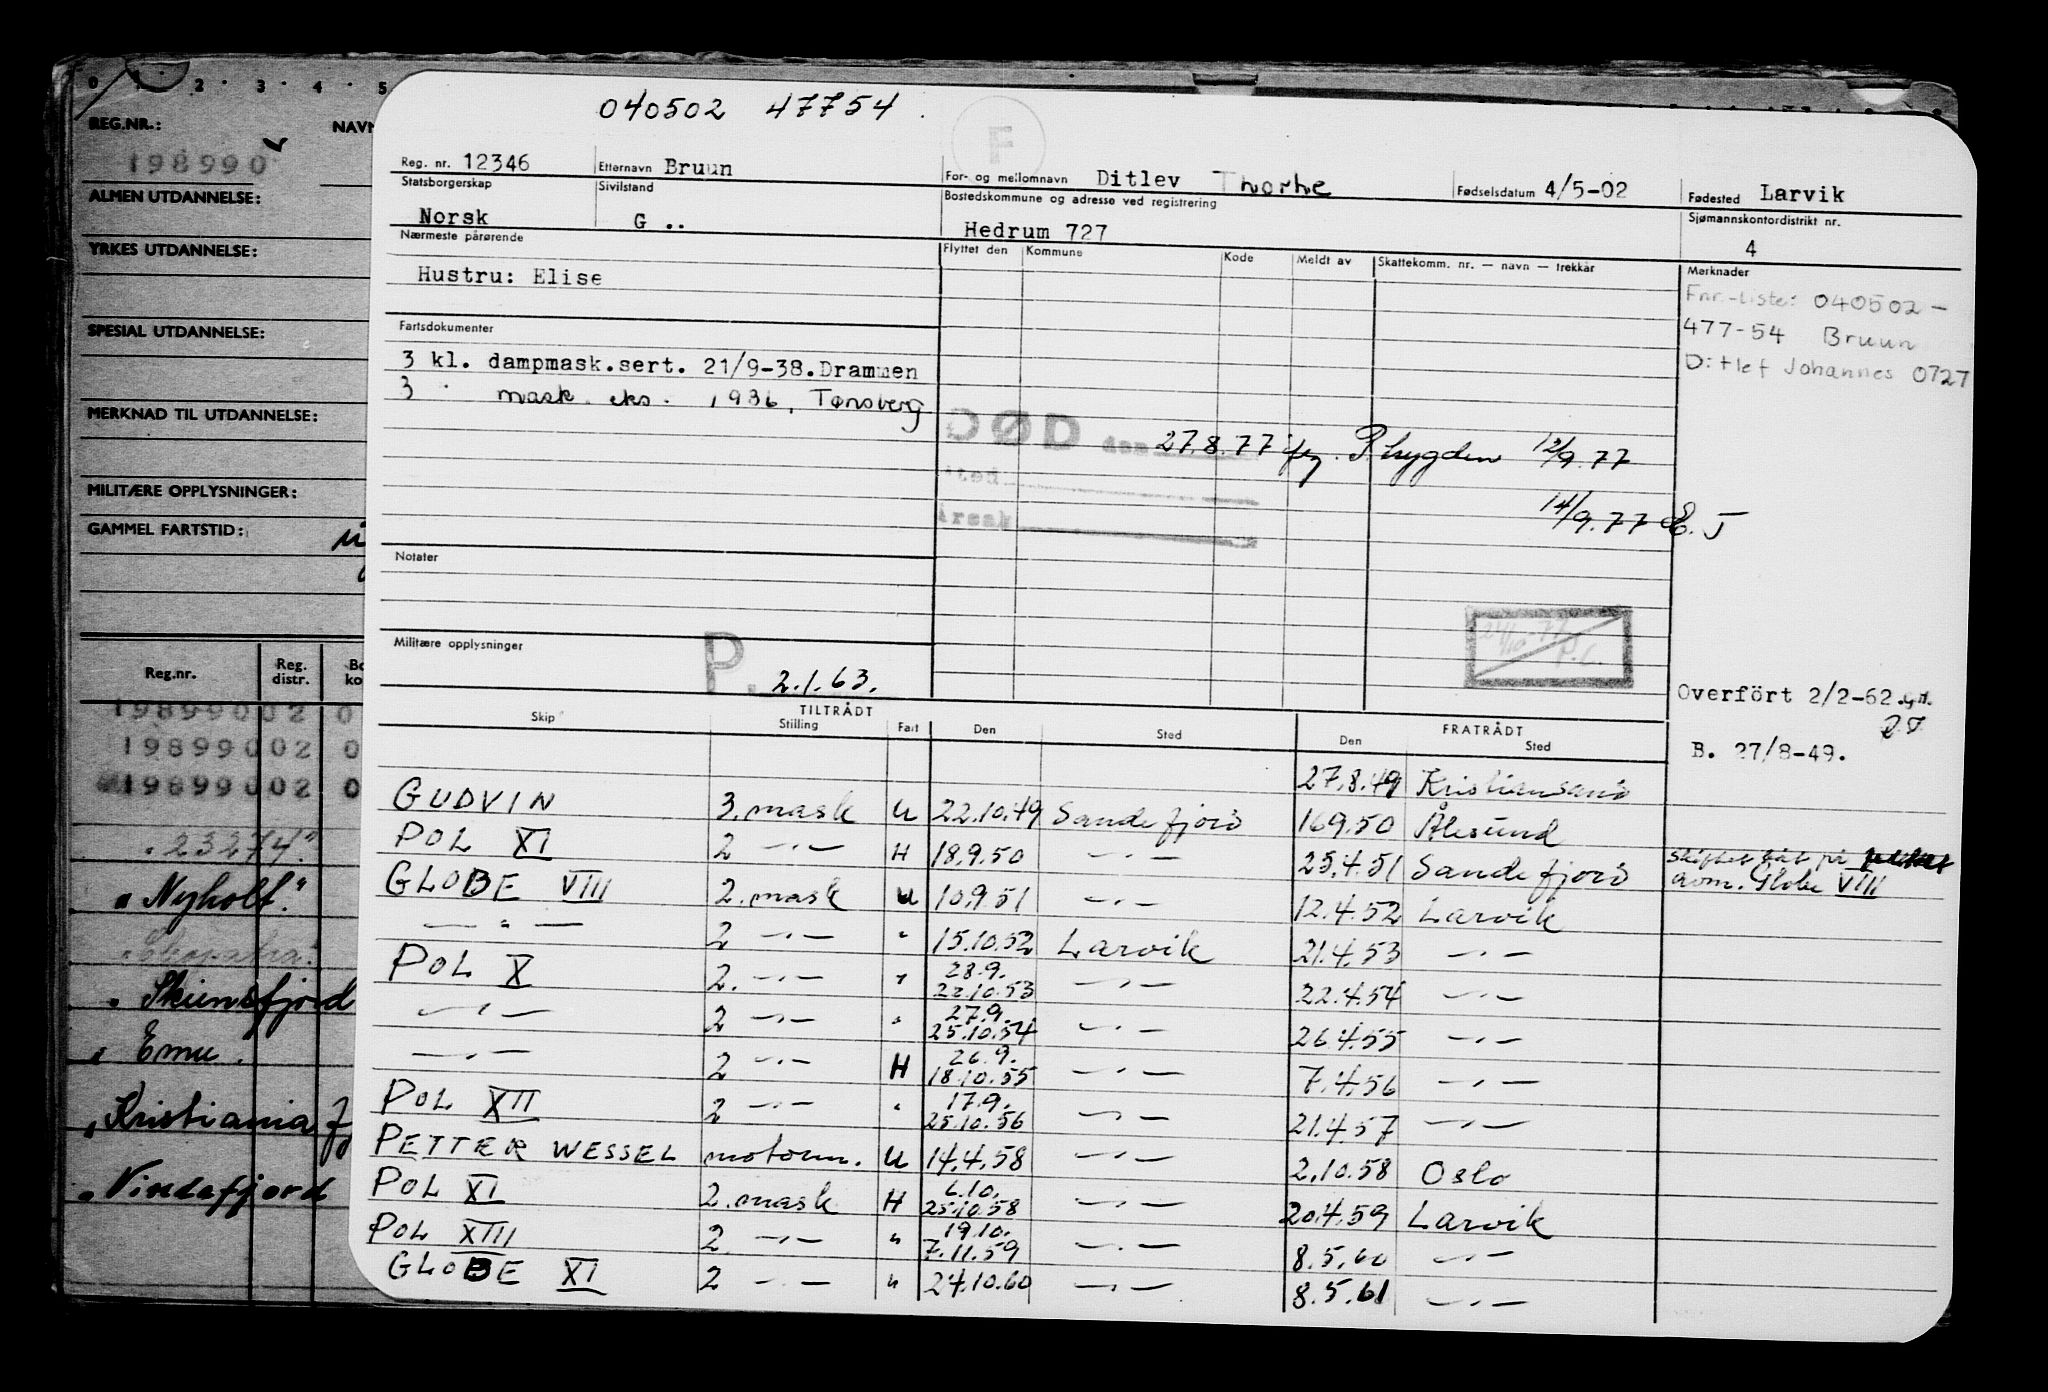 0 1 2 3 4 5
REG.NR.: NAVN
198990
ALMEN UTDANNELSE:
YRKES UTDANNELSE:
SPESIAL UTDANNELSE:
MERKNAD TIL UTDANNELSE:
MILITÆRE OPPLYSNINGER:
GAMMEL FARTSTID:
Reg.nr. Reg. distr. Bo ko
198990 02 0
198990 02 0
198990 02 0
"23274"
"Nyholt"
" Skiensfjord
" Emu.
" Kristianiafj
" Vindafjord
040502 47754
F
Reg. nr. 12346 Etternavn Bruun For- og mellomnavn Ditlev Fødselsdatum 4/5-02 Fødested Larvik
Statsborgerskap Sivilstand Bostedskommune og adresse ved registrering Sjømannskontordistrikt nr.
Norsk G .. Hedrum 727 4
Nærmeste pårørende Flyttet den Kommune Kode Meldt av Skattekomm. nr. — navn — trekkår Merknader
Hustru: Elise
Fnr.-liste: 040502-
477-54 Bruun
Ditlef Johannes 0727
Fartsdokumenter
3 kl. dampmask.sert. 21/9-38.Drammen
3 " mask. eks. 1936, Tønsberg
DØD den 27.8.77 jfg. P.trygden 12/9.77
sted
årsak
14/9.77 E. J
Notater
Militære opplysninger
P. 2.1.63.
P.C.
Overfört 2/2-62.
B. 27/8-49.
Skip TILTRÅDT Stilling Fart Den Sted FRATRÅDT Den Sted
27.8.49 Kristiansand
GUDVIN 3. mask U 22.10.49 Sandefjord 16.9.50 Ålesund
POL XI 2 —"— H 18.9.50 —"— 25.4.51 Sandefjord skiftet båt på
GLOBE VIII 2. mask U 10.9.51 —"— 12.4.52 Larvik Globe VIII
—"— 2 —"— " 15.10.52 Larvik 21.4.53 —"—
POL X 2. —"— " 28.9. 22.10.53 —"— 22.4.54 —"—
—"— 2 —"— " 27.9. 25.10.54 —"— 26.4.55 —"—
—"— 2 —"— H 26.9. 18.10.55 —"— 7.4.56 —"—
POL XII 2 —"— " 17.9. 25.10.56 —"— 21.4.57 —"—
PETTER WESSEL motorm. U 14.4.58 —"— 2.10.58 Oslo
POL XI 2. mask H 6.10. 25.10.58 —"— 20.4.59 Larvik
POL XIII 2. —"— " 19.10. 7.11.59 —"— 8.5.60 —"—
GLOBE XI 2 —"— " 24.10.60 —"— 8.5.61 —"—